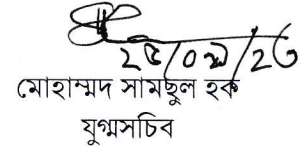 ২৫/০৯/২৩
মোহাম্মদ সামছুল হক
যুগ্মসচিব